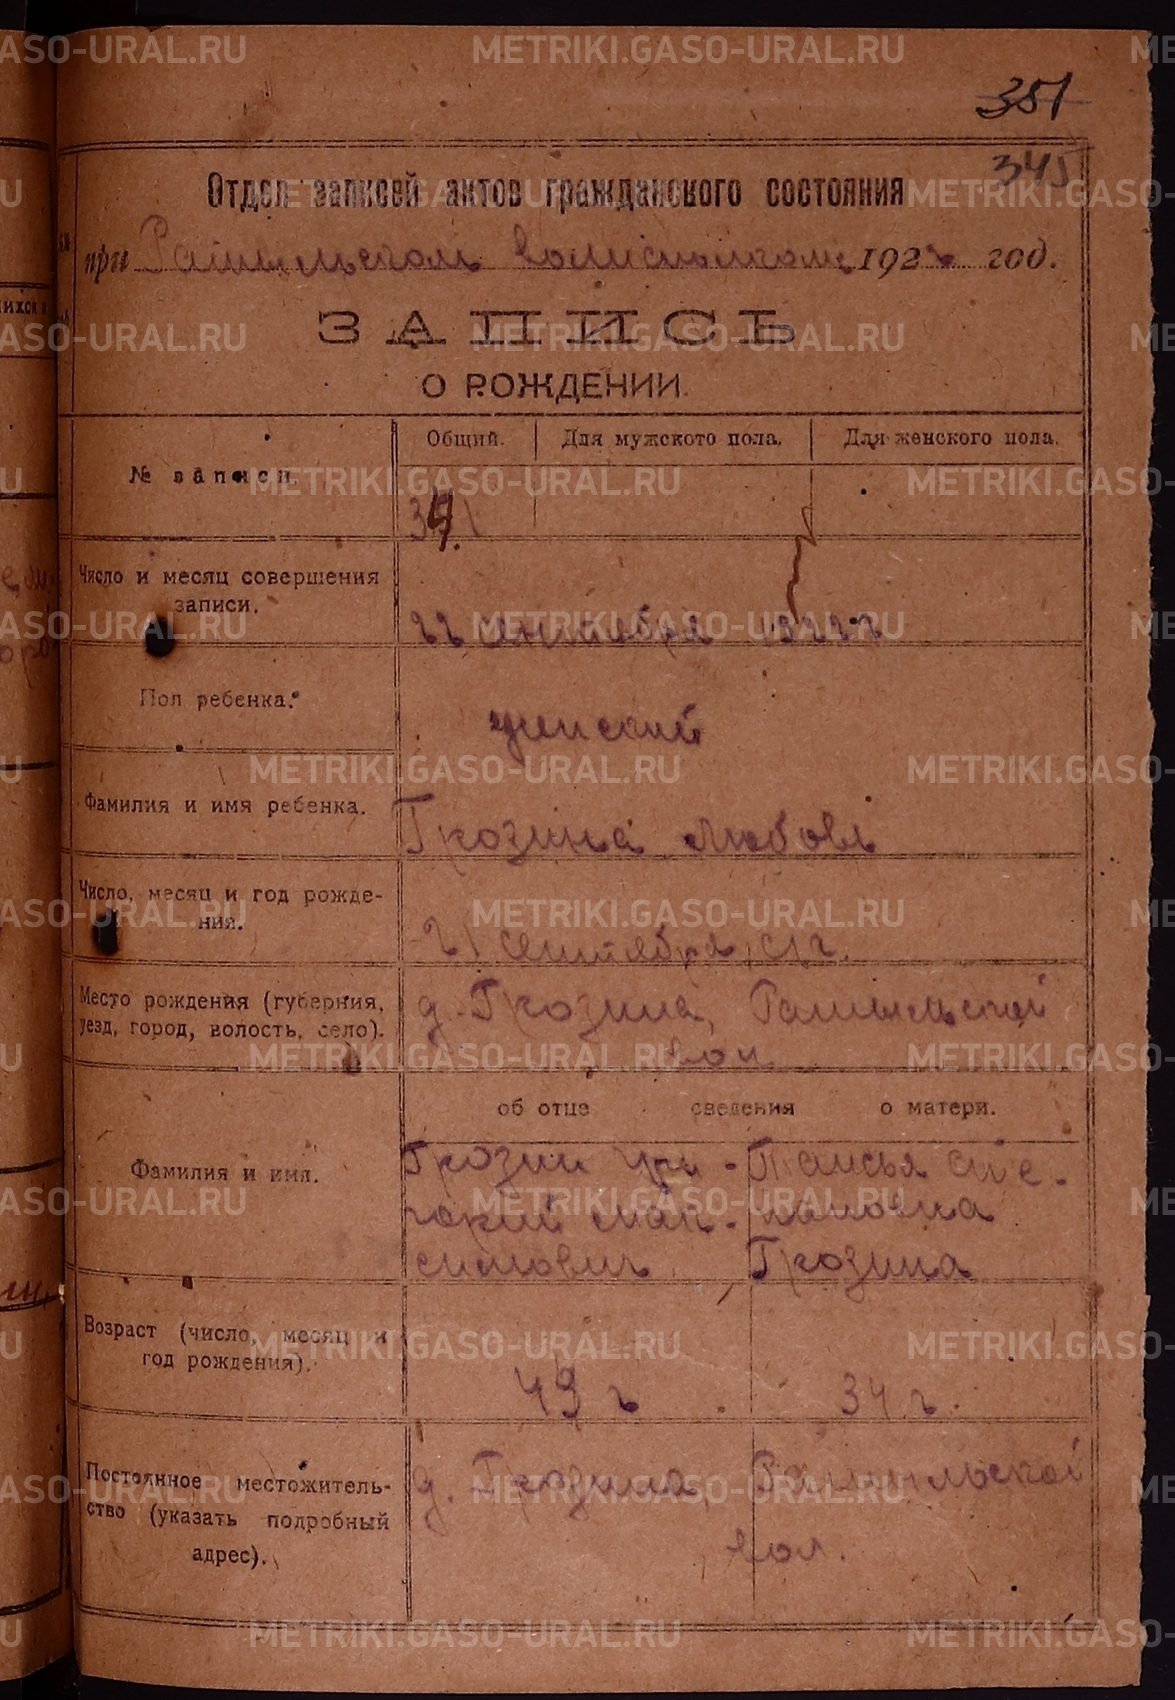 351
345
Отдел записей актов гражданского состояния
при Рамыльском волисполкоме 1922 год.
ЗАПИСЬ
О РОЖДЕНИИ.
№ записи.
Общий. Для мужского пола. Для женского пола.
Число и месяц совершения
записи.
22 сентября 1922 г
Пол ребенка.
женский
Фамилия и имя ребенка.
Грозина Любовь
Число, месяц и год рожде-
ния.
21 сентября, с/г.
Место рождения (губерния,
уезд, город, волость, село).
д. Грозина, Рамыльской
вол
об отце сведения о матери.
Фамилия и имя.
Грозин
Таисья Сте-
пановна
симович
Грозина
Возраст (число, месяц и
год рождения).
49 г
34 г.
Постоянное местожитель-
ство (указать подробный
адрес).
д. Грозина, Рамыльской
вол.
METRIKI.GASO-URAL.RU